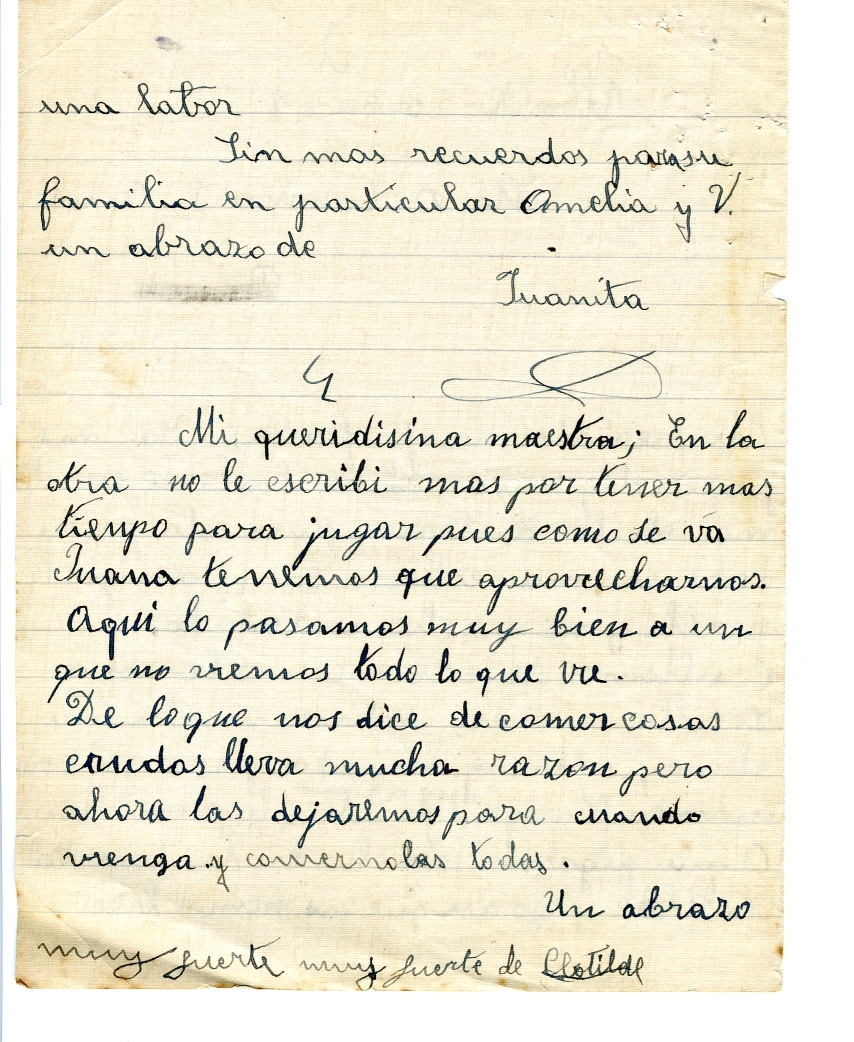 una labor
Sin mas recuerdos para su
familia en particular Amelia y V.
un abrazo de
Juanita
Mi queridisina maestra; En la
otra no le escribi mas por tener mas
tienpo para jugar pues como se va
Juana tenemos que aprovecharnos.
Aqui lo pasamos muy bien a un
que no vremos todo lo que vie.
De loque nos dice de comer cosas
crudas lleva mucha razon pero
ahora las dejaremos para cuando
vrenga y comernolas todas.
Un abrazo
muy fuerte muy fuerte de Clotilde